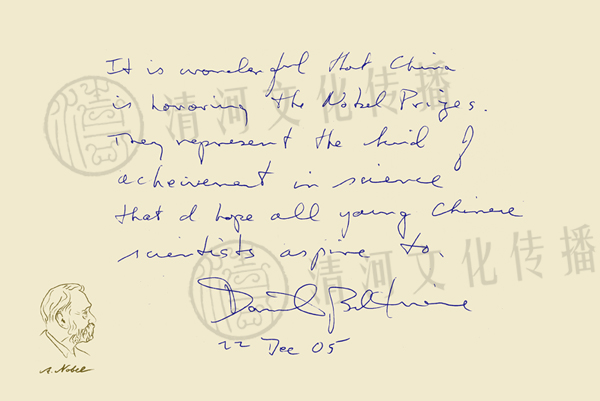 It is wonderful that China
is honoring the Nobel Prizes.
They represent the kind of
acheivement in science
that I hope all young Chinese
scientists aspire to.
David Baltimore
22 Dec 05
A. Nobel
清河文化传播
清河文化传播